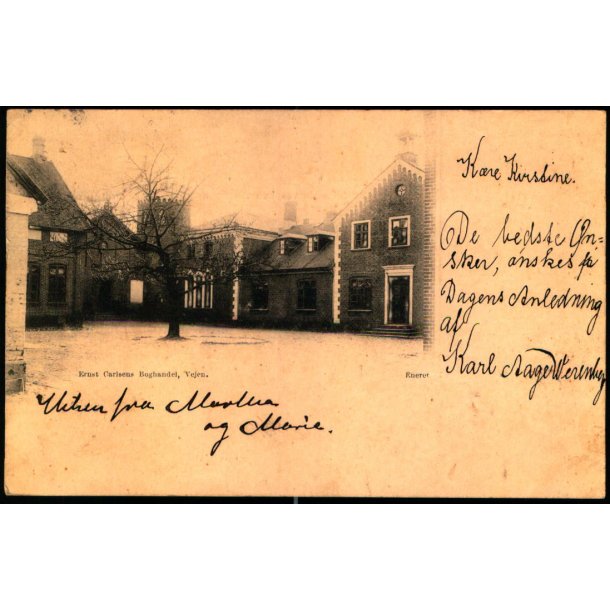 Kære Kirstine.
De bedste Øn-
sker, ønskes på
Dagens Anledning
af
Karl Aage
Ernst Carlsens Boghandel, Vejen.
Eneret
Hilsen fra Martha
og Marie.